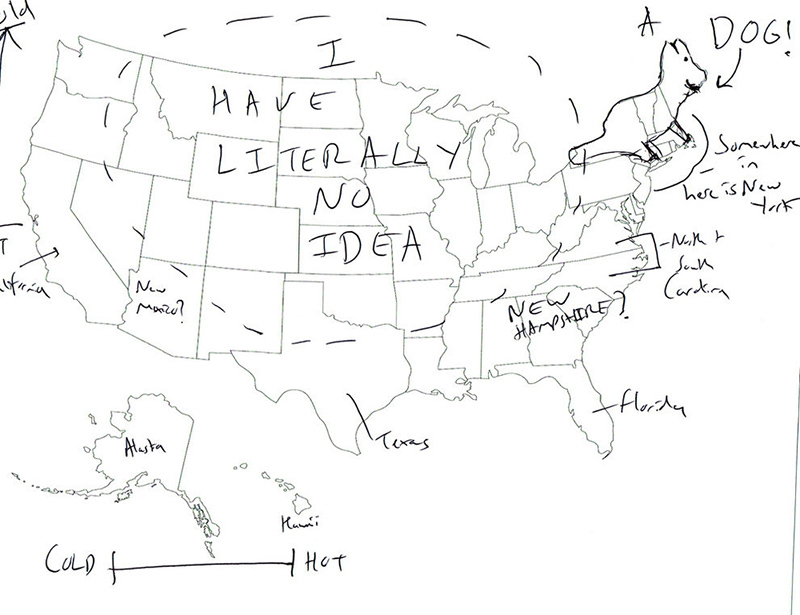 I
HAVE
LITERALLY
NO
IDEA
A
DOG!
Somewhere
in
here is New
York
North +
South
Carolina
New
Mexico?
NEW
HAMPSHIRE?
Florida
Texas
Alaska
Hawaii
COLD
HOT